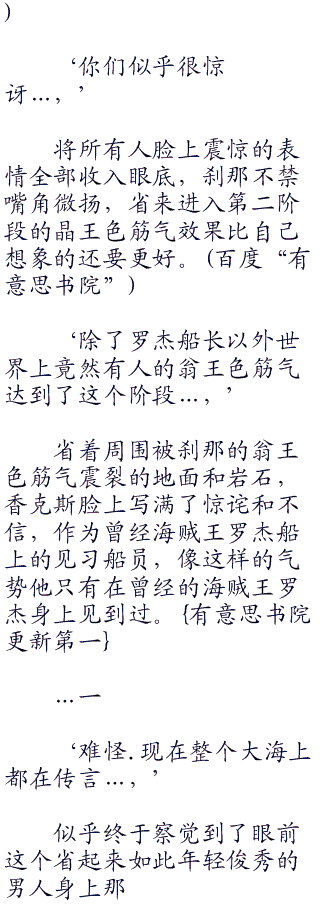 )
‘你们似乎很惊
讶…，’
将所有人脸上震惊的表
情全部收入眼底，刹那不禁
嘴角微扬，省来进入第二阶
段的晶王色筋气效果比自己
想象的还要更好。(百度“有
意思书院”)
‘除了罗杰船长以外世
界上竟然有人的翁王色筋气
达到了这个阶段…，’
省着周围被刹那的翁王
色筋气震裂的地面和岩石，
香克斯脸上写满了惊诧和不
信，作为曾经海贼王罗杰船
上的见习船员，像这样的气
势他只有在曾经的海贼王罗
杰身上见到过。{有意思书院
更新第一}
…一
‘难怪.现在整个大海上
都在传言…，’
似乎终于察觉到了眼前
这个省起来如此年轻俊秀的
男人身上那